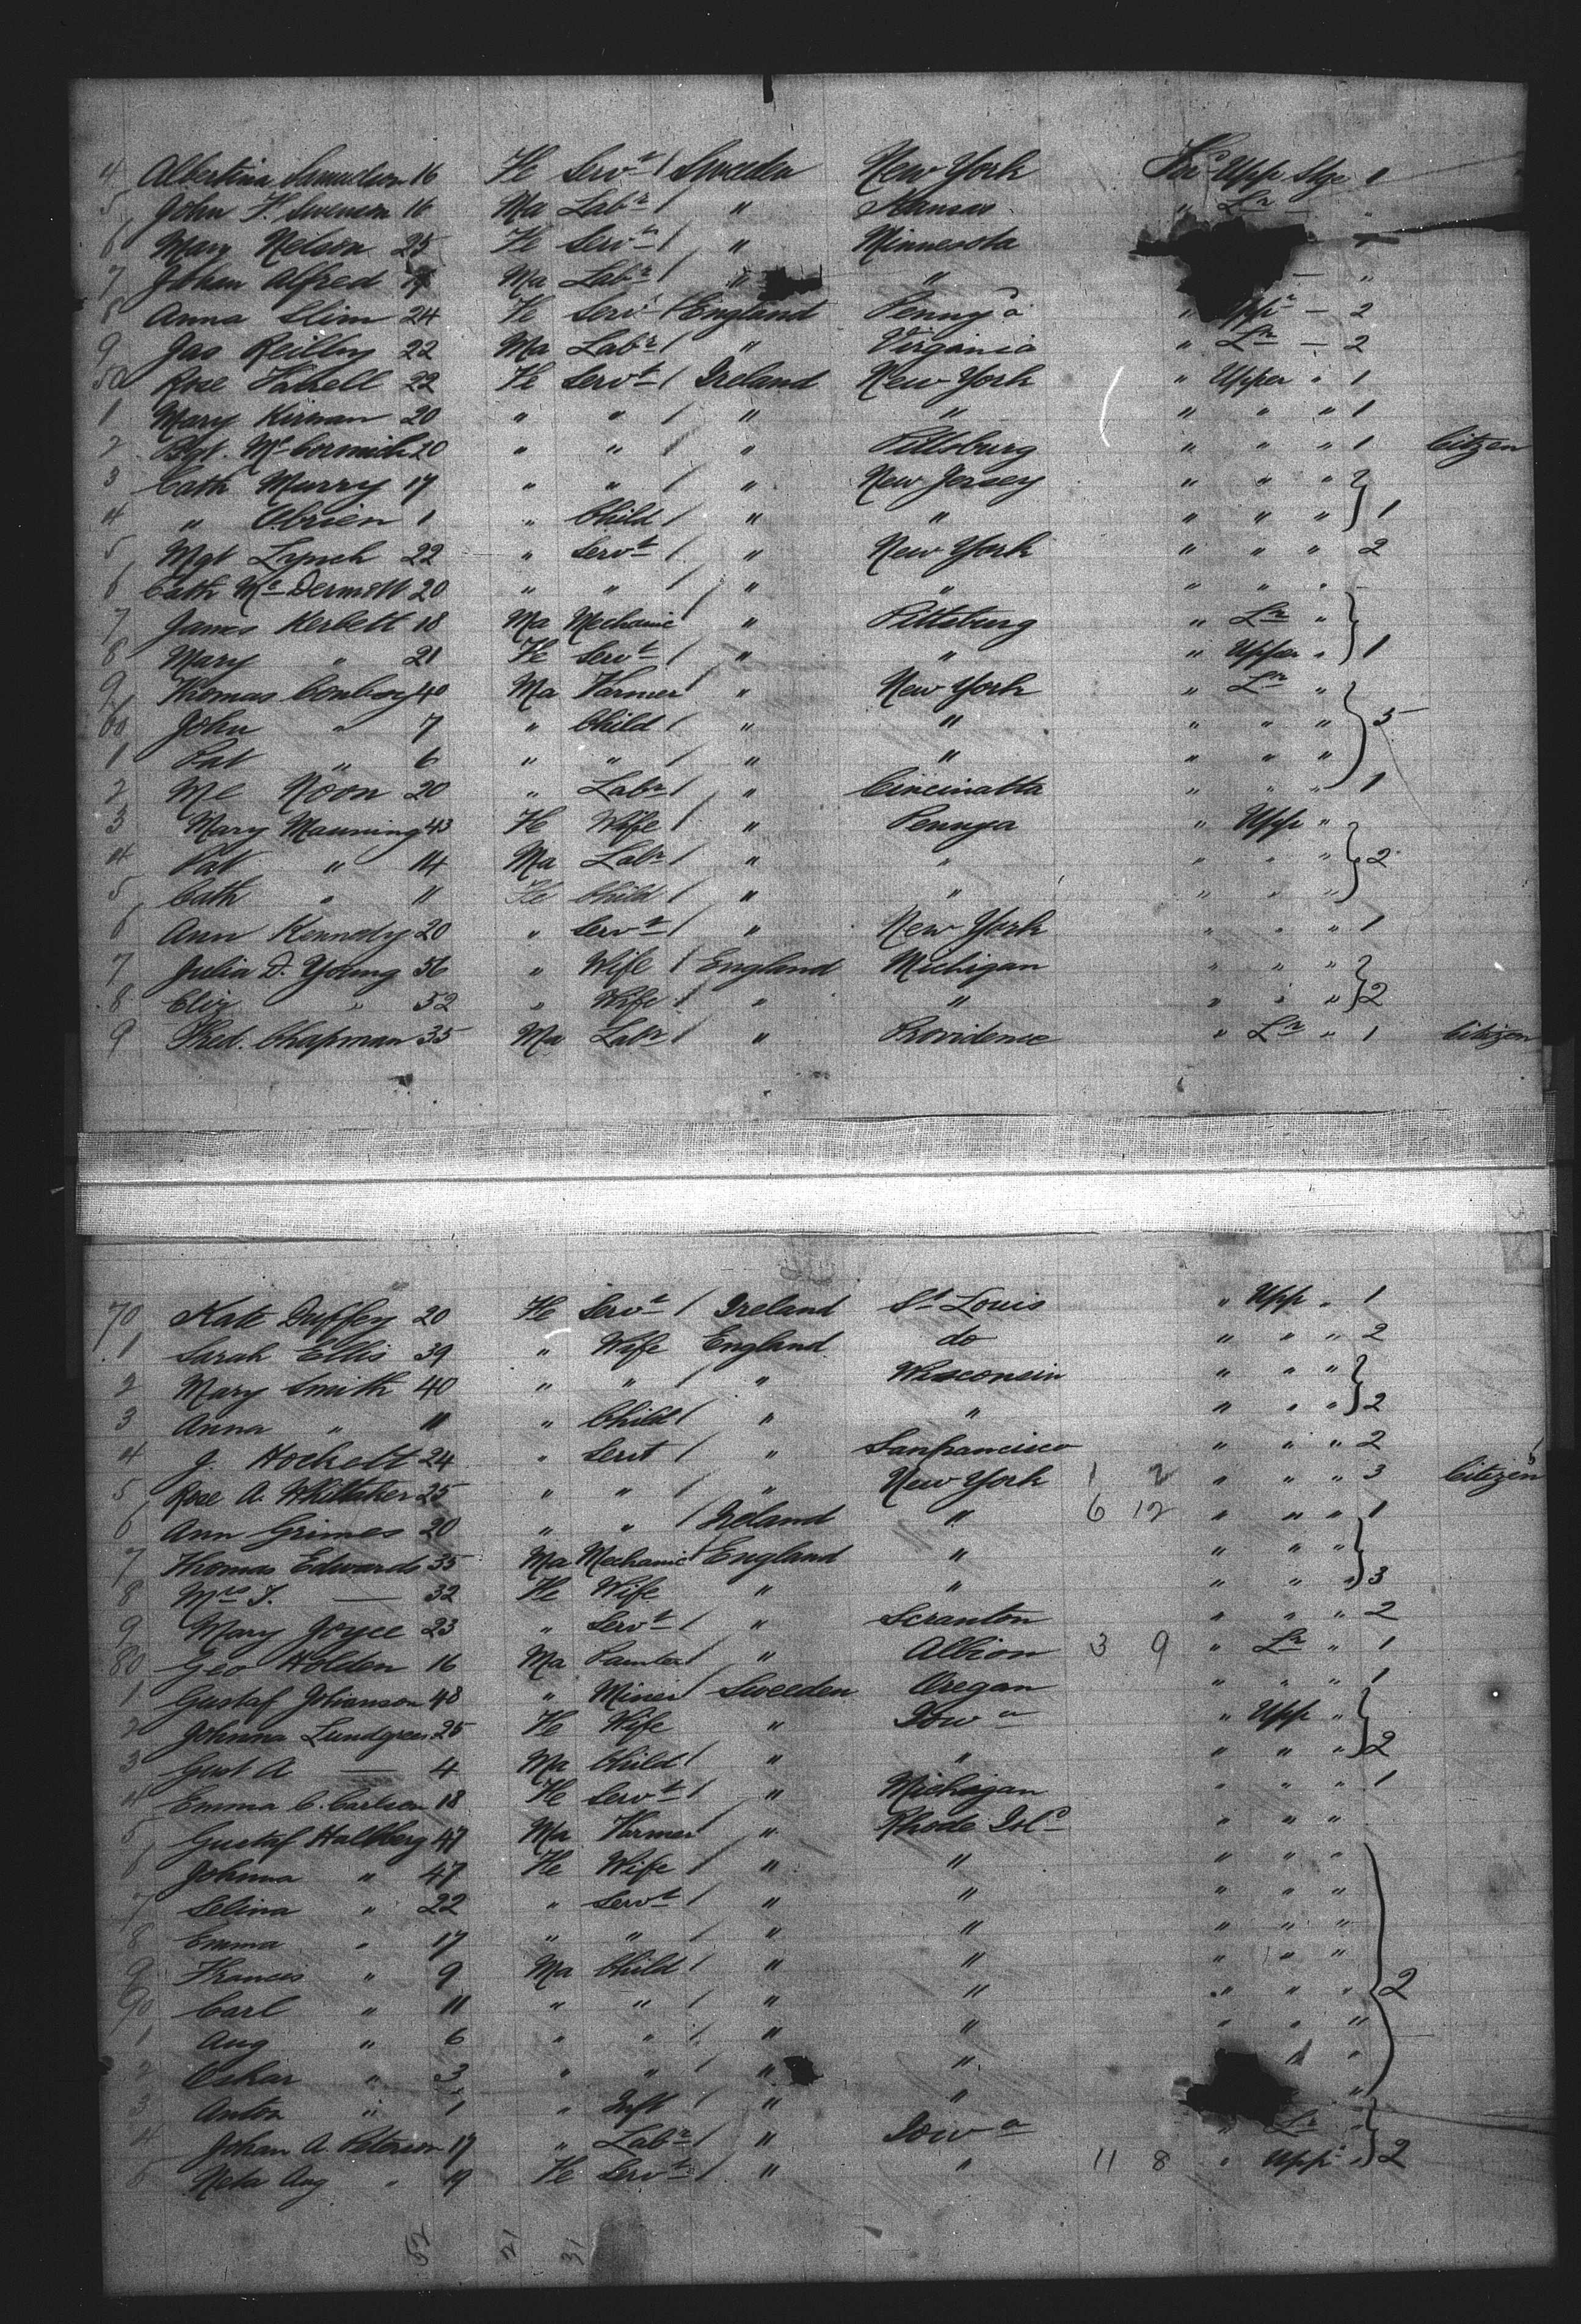 4 Albertina Samuelson 16 Fe Servt / Sweden New York For Upp Stge 1
5 John F. Swenson 16 Ma Labr / " Kansas " Lr — "
6 Mary Nelson 25 Fe Servt / " Minnesota "
7 Johan Alfred Ma Labr / " " — "
8 Anna Slim 24 Fe Servt / England Pennya " Uppr — 2
9 Jas Reilley 22 Ma Labr / " Virginia " Lr — 2
50 Rose Farrell 22 Fe Servt / Ireland New York " Upper " 1
1 Mary Kirwan 20 " " / " " " " " 1
2 Bgt. McCormick 20 " " / " Pittsburg " " " 1 Citizen
3 Cath Murry 17 " " / " New Jersey " " "
4 " Obrien 1 " Child / " " " " " } 1
5 Mgt Lynch 22 " Servt / " New York " " " 2
6 Cath McDermott 20 " " / " " " " "
7 James Kerbett 18 Ma Mechanic " Pittsburg " Lr "
8 Mary " 21 Fe Servt / " " " Upper " } 1
9 Thomas Conboy 40 Ma Farmer " New York " Lr "
60 John " 7 " Child / " " " " " } 5
1 Pat " 6 " " / " " " " "
2 Ml Noon 20 " Labr / " Cincinatta " " " 1
3 Mary Manning 43 Fe Wife / " Pennya " Upp "
4 Pat " 14 Ma Labr / " " " " " } 2
5 Cath " 11 Fe Child / " " " " "
6 Ann Kennedy 20 " Servt / " New York " " " 1
7 Julia D. Young 56 " Wife / England Michigan " " "
8 Eliz " 52 " Wife / " " " " " } 2
9 Fred. Chapman 35 Ma Labr / " Providence " Lr " 1 Citizen
70 Kate Duffey 20 Fe Servt / Ireland St Louis " Upp " 1
1 Sarah Ellis 39 " Wife England do " " " 2
2 Mary Smith 40 " " / " Wisconsin " " "
3 Anna " 11 " Child / " " " " " } 2
4 J. Hockolt 24 " Servt / " Sanfrancisco " " " 2
5 Rose A. Whittaker 25 " " / " New York 1 2 " " " 3 Citizen
6 Ann Grimes 20 " " / Ireland " 6 12 " " " 1
7 Thomas Edwards 35 Ma Mechanic / England " " " "
8 Mrs T. — 32 Fe Wife " " " " " } 3
9 Mary Joyce 23 " Servt / " Scranton " " " 2
80 Geo Holden 16 Ma Painter / " Albion 3 9 " Lr " 1
1 Gustaf Johanson 48 " Miner / Sweeden Oregan " " " 1
2 Johnna Lundgren 25 Fe Wife " Iowa " Upp "
3 Gust A — 4 Ma Child / " " " " " } 2
4 Emma C. Carlson 18 Fe Servt / " Michigan " " " 1
5 Gustaf Hallberg 47 Ma Farmer " Rhode Isld " " "
6 Johnna " 47 Fe Wife / " " " " "
7 Selina " 22 " Servt / " " " " "
8 Emma " 17 " " / " " " " "
9 Francis " 9 Ma Child / " " " " "
90 Carl " 11 " " / " " " " " } 2
1 Aug " 6 " " / " " " " "
2 Oskar " 3 " " / " " " "
3 Anton " 1 " Inft / " " "
4 Johan A. Peterson 17 " Labr / " Iowa " Lr "
5 Neta Aug " 19 Fe Servt / " " 11 8 " Uppr " } 2
52 21 31